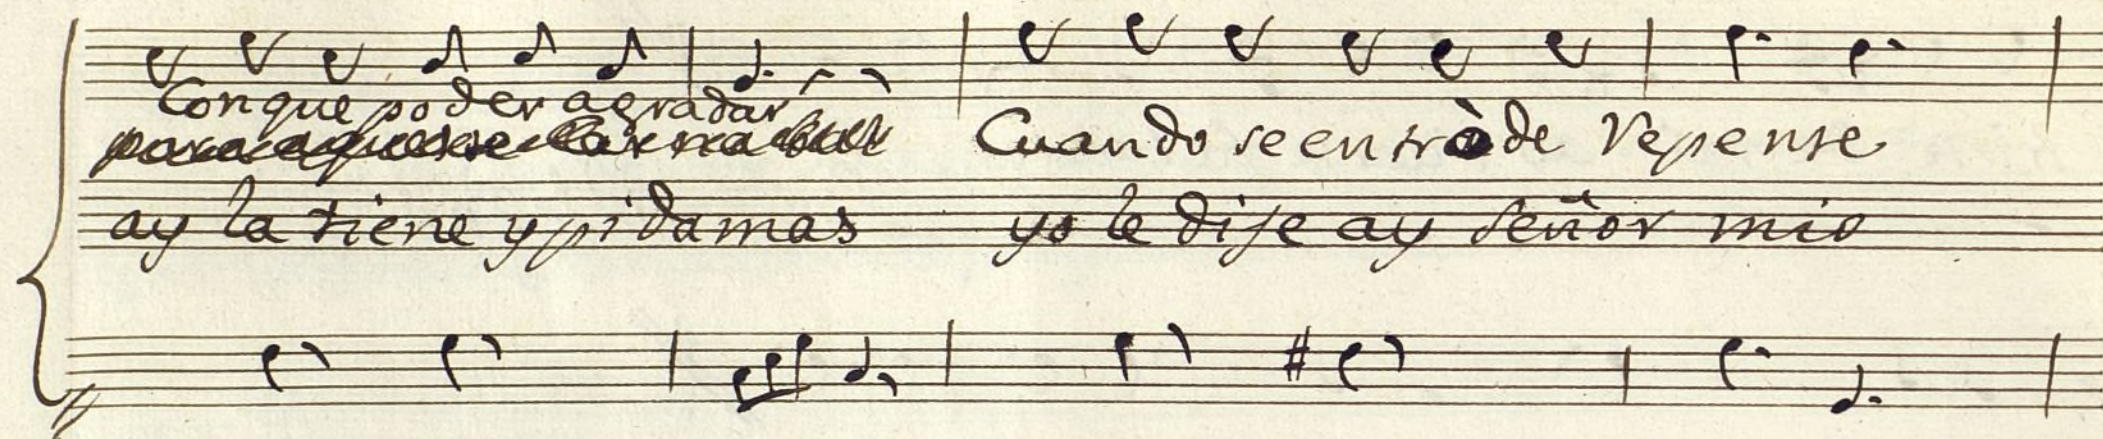 Con que poder agradar
Cuando se entrò de Repente
ay la tiene y pida mas yo le dije ay señor mio